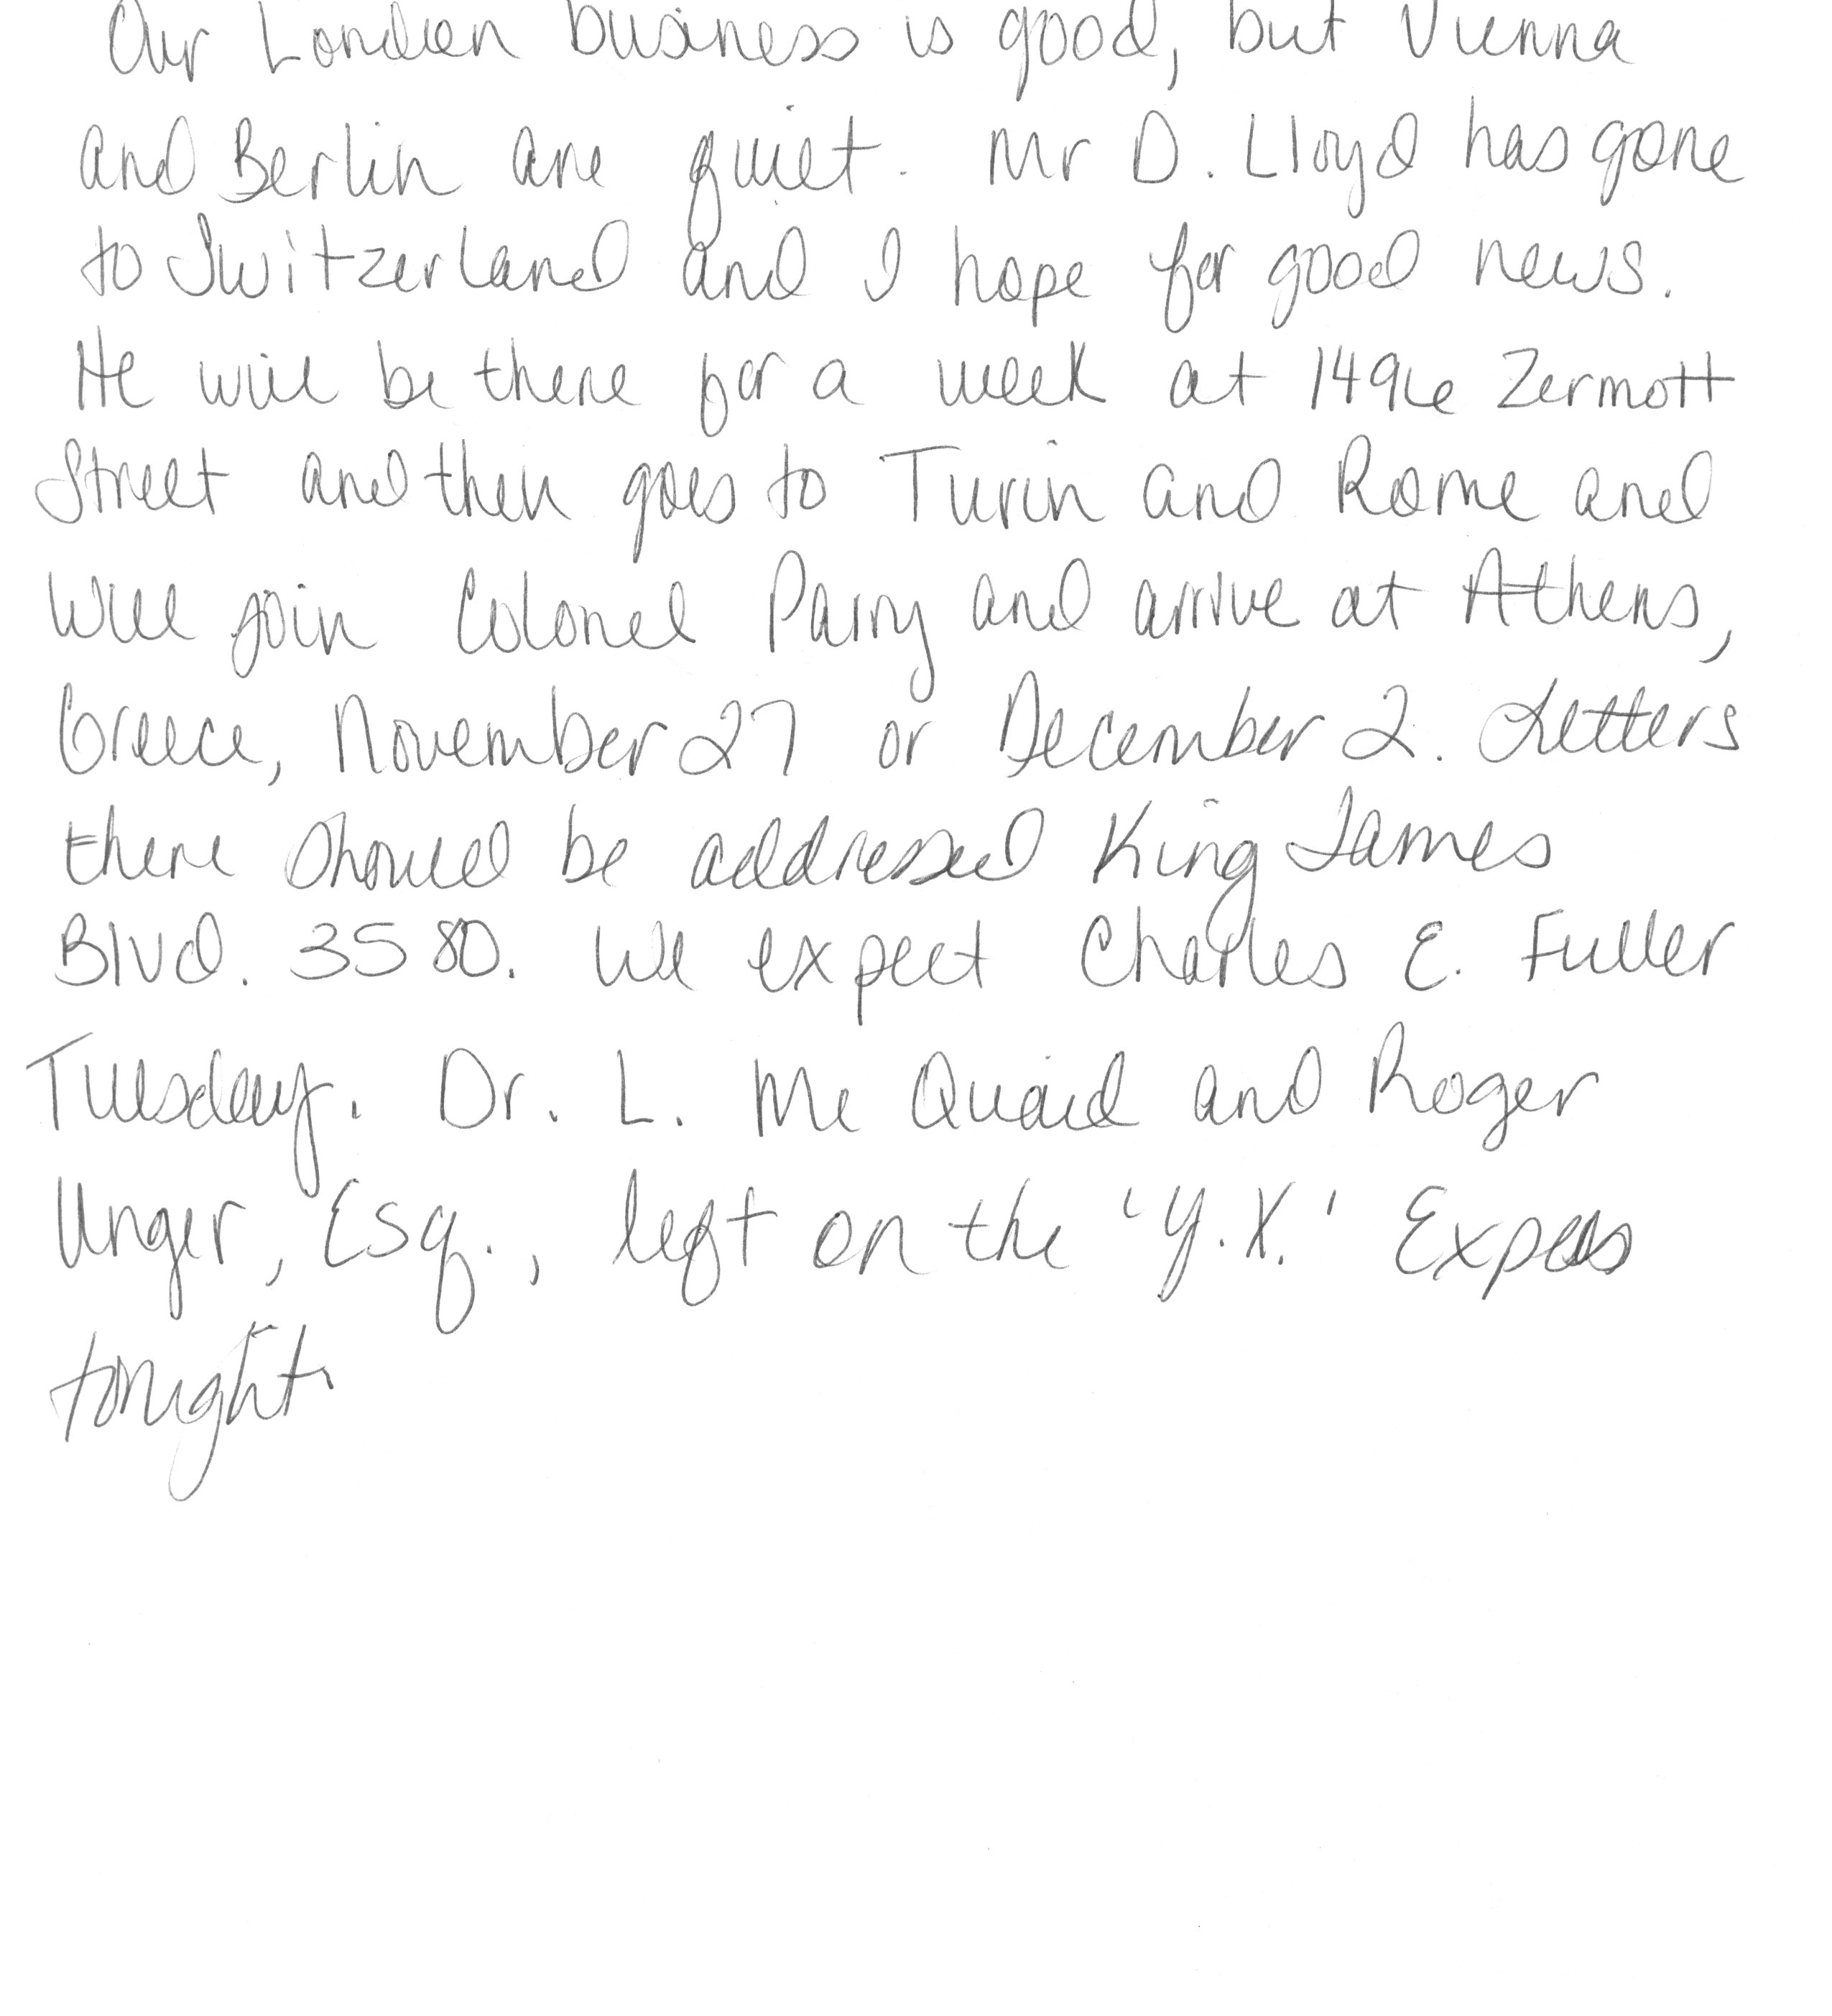 Our London business is good, but Vienna
and Berlin are quiet. Mr D. Lloyd has gone
to Switzerland and I hope for good news.
He will be there for a week at 1496 Zermott
Street and then goes to Turin and Rome and
will join Colonel Parry and arrive at Athens,
Greece, November 27 or December 2. Letters
there should be addressed King James
Blvd. 3580. We expect Charles E. Fuller
Tuesday. Dr. L. Mc Quaid and Roger
Unger, Esq., left on the 'Y.X.' Express
tonight.